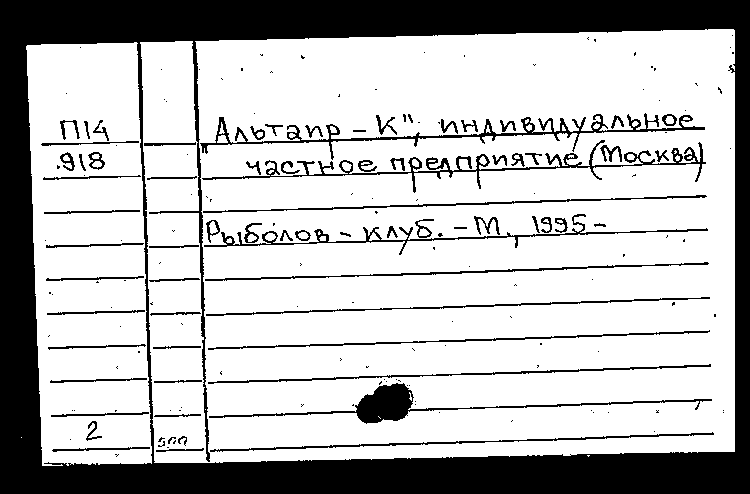 П14
.918
"Альтаир - К", индивидуальное
частное предприятие (Москва)
Рыболов - клуб. - М., 1995 -
2